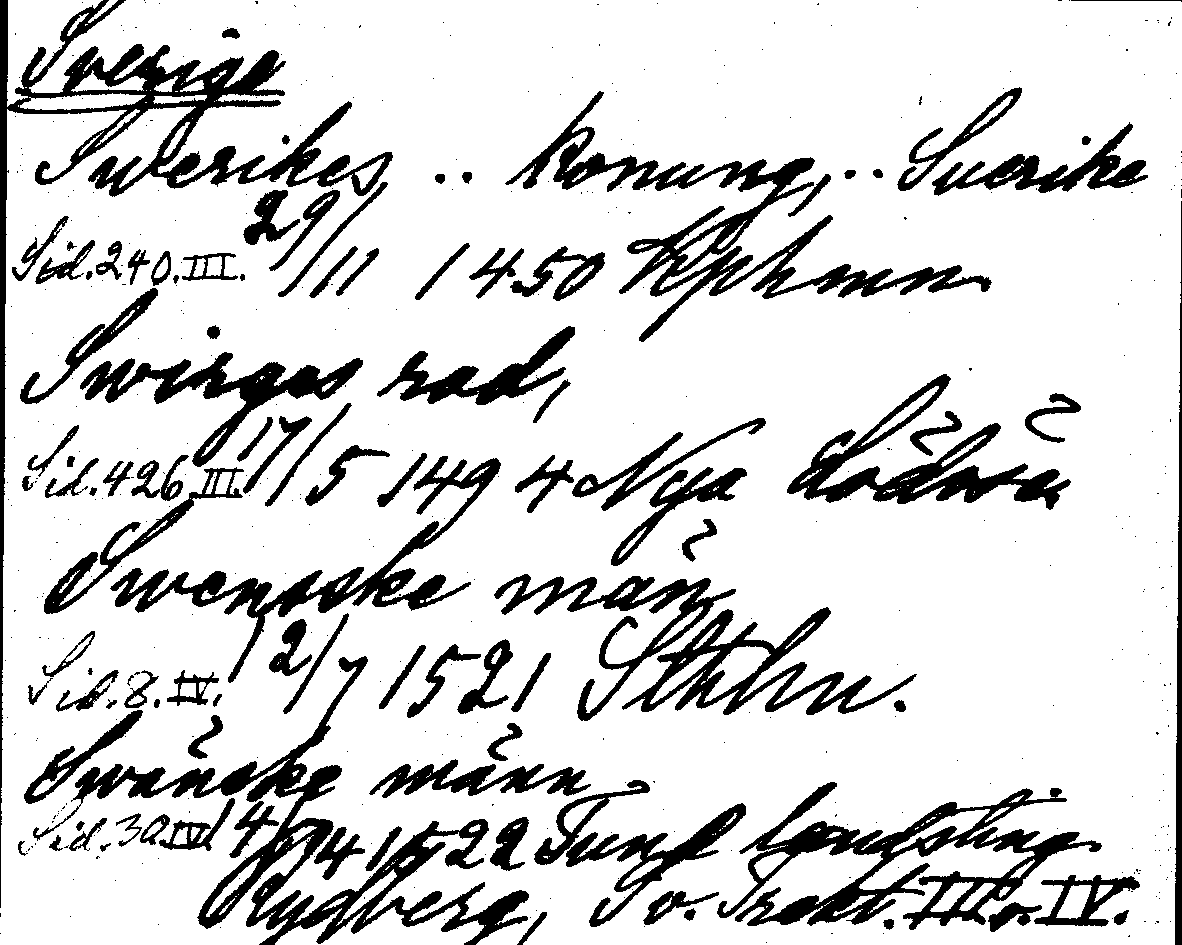 Sverige
Swerikes .. konung, .. Suerike
Sid. 240. III. 29/11 1450 Kphmn.
Swirges rad,
Sid. 426. III. 17/5 1494 Nya Lödöse,
Swenske män,
Sid. 8. IV. 12/7 1521 Sthlm.
Swänske männ
Sid. 30. IV. 14/4 1522 landsting.
Rydberg, Sv. Trakt. III o. IV.